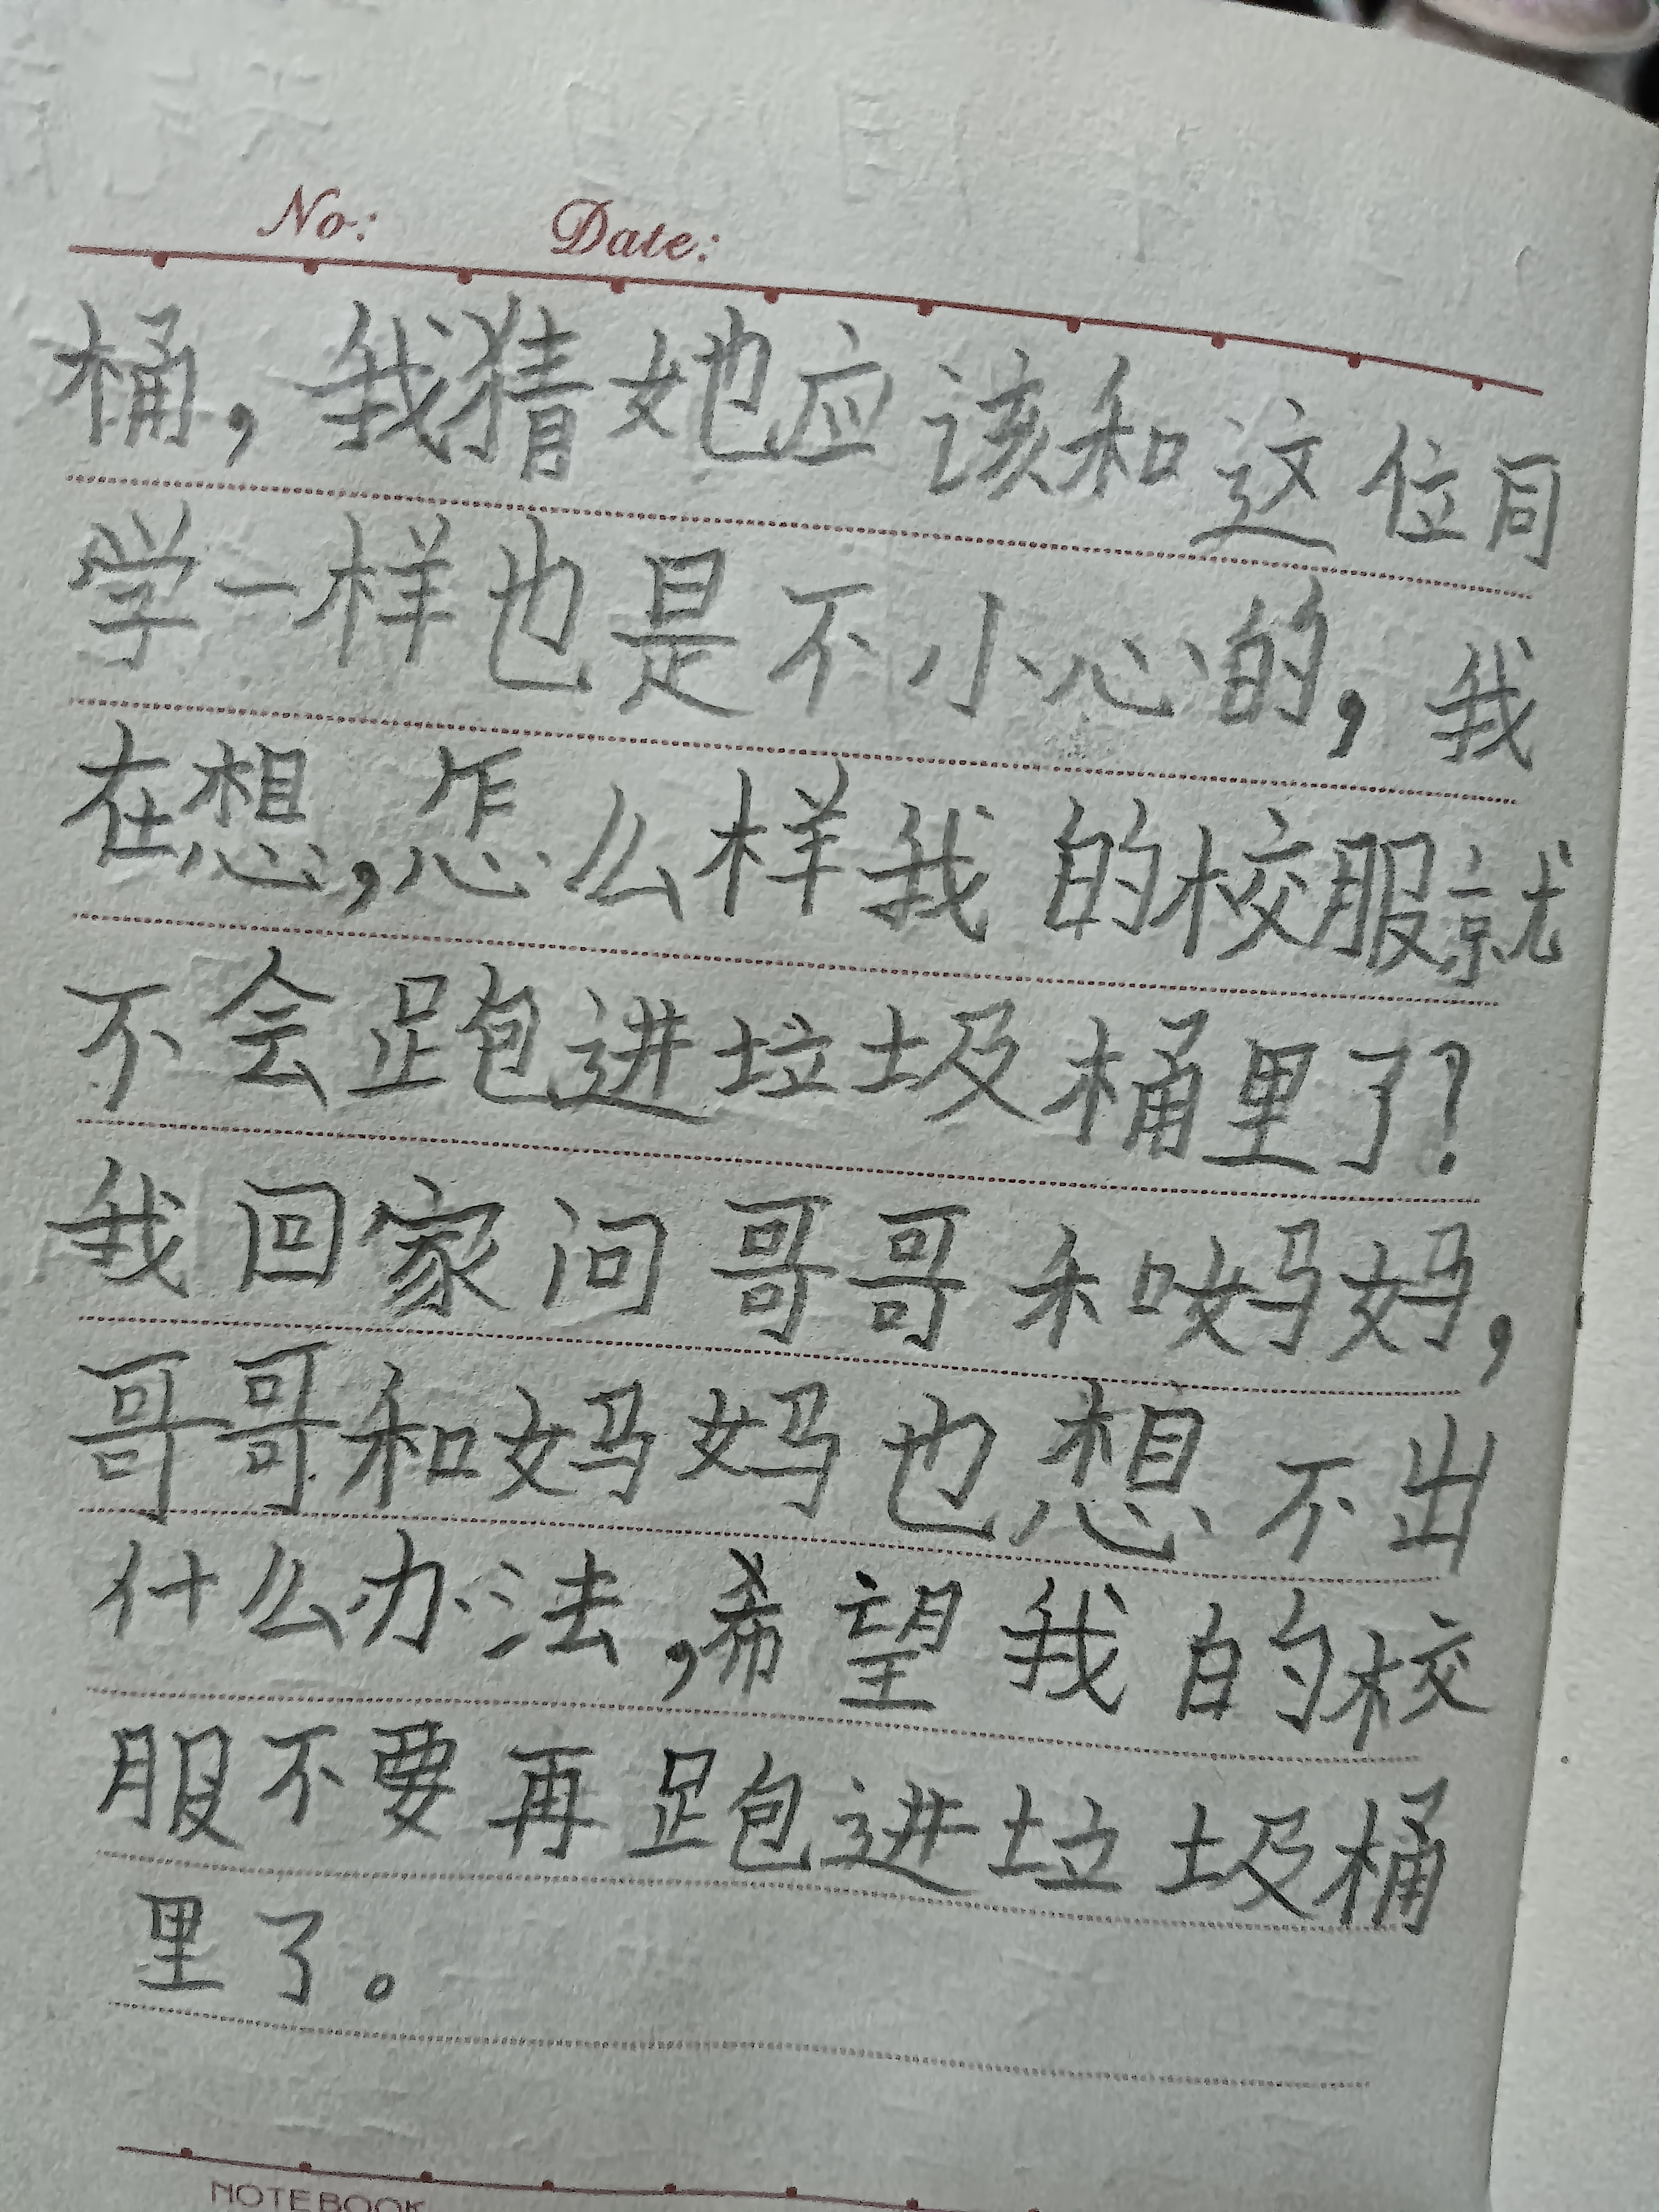 No: Date:
桶，我猜她应该和这位同
学一样也是不小心的，我
在想，怎么样我的校服就
不会跑进垃圾桶里了？
我回家问哥哥和妈妈，
哥哥和妈妈也想不出
什么办法，希望我的校
服不要再跑进垃圾桶
里了。
NOTEBOOK